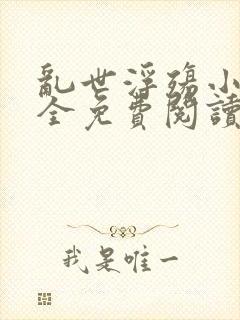 亂世浮殤小
全免費閱讀
我是唯一